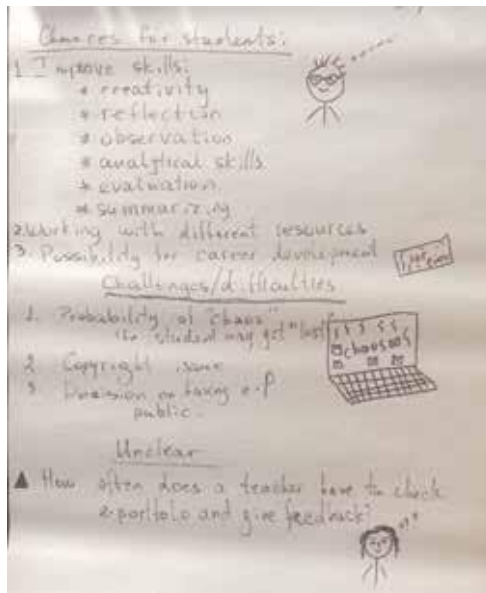 Chances for students:
1. Improve skills:
* creativity
* reflection
* observation
* analytical skills
* evaluation
* summarizing
2. Working with different resources
3. Possibility for career development
Challenges/difficulties
1. Probability of "chaos"
the student may get "lost"
chaos
2 Copyright issue
3 Decision on taking e-P
public.
Unclear
▲ How often does a teacher have to check
e-portfolo and give feedback?